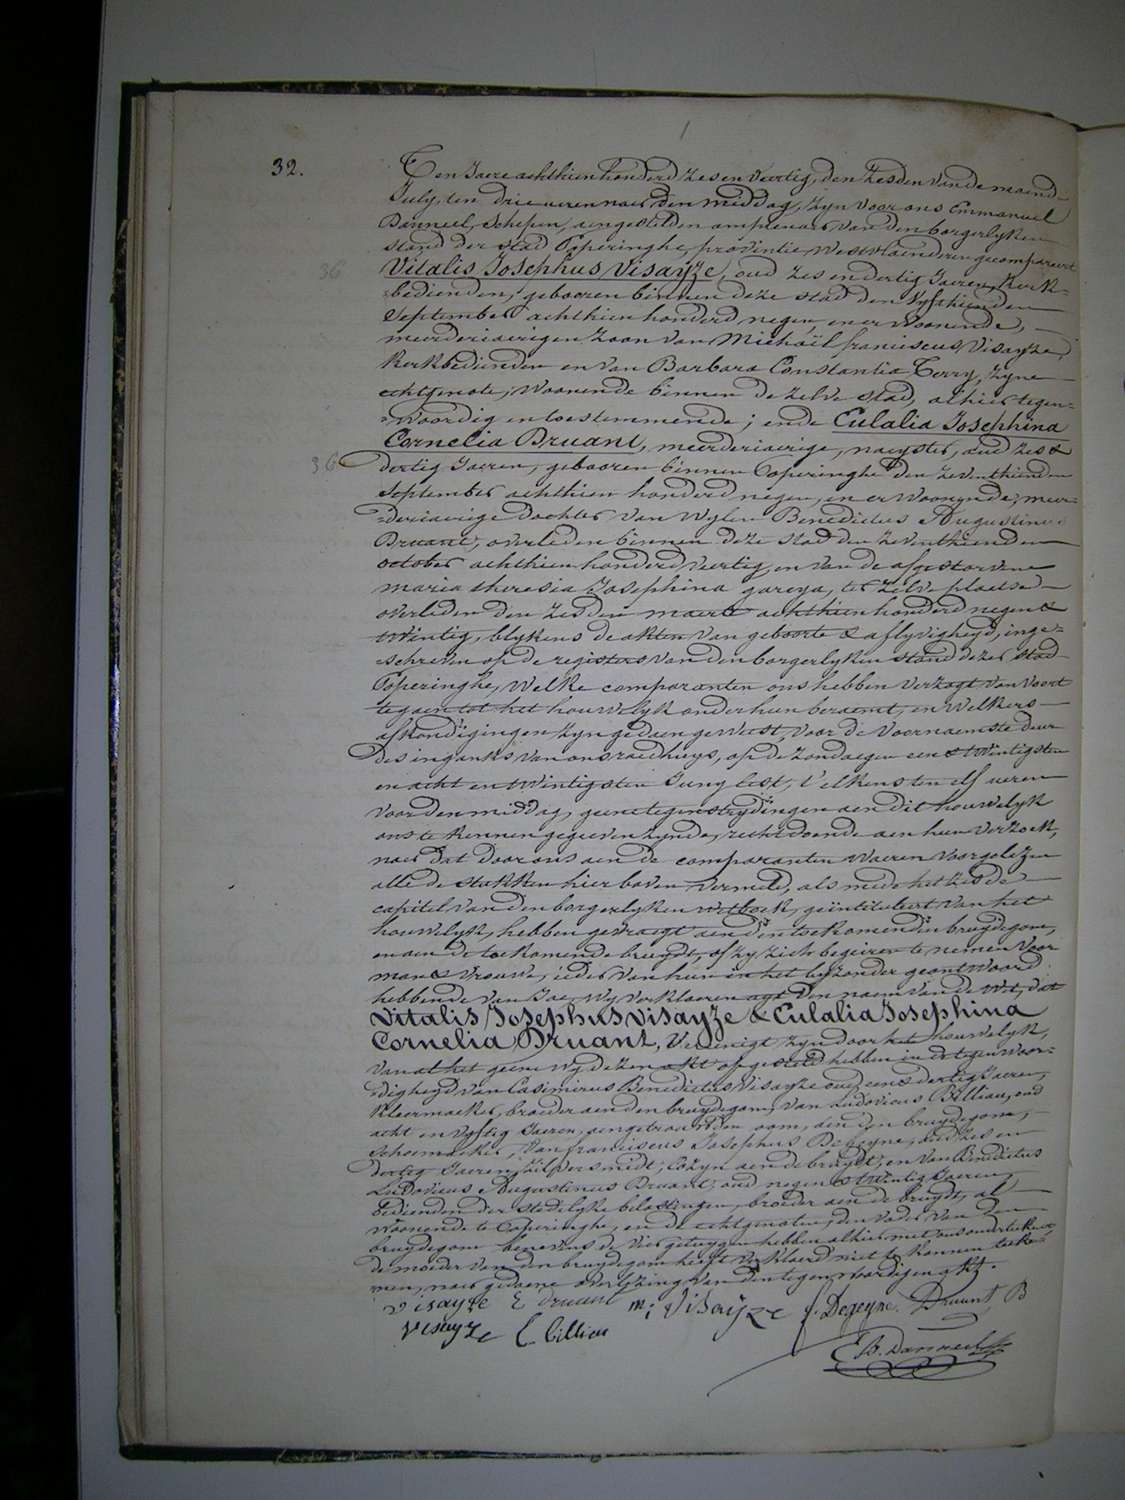 32.
Ten Jaere achthien honderd zes en veertig, den zesden van de maend
July, ten drie ueren naer den middag, zyn voor ons Emmanuel
Banneel, Schepen, aengestelden amptenaer van den borgerlyken
stand der stad Poperinghe, provintie Westvlaenderen gecompareert
36
Vitalis Josephus Visayze, oud zes en dertig Jaeren, Kerk-
bedienden, gebooren binnen deze stad den Vyfthienden
September achthien honderd negen en er woonende,
meerderiaerigen Zoon van Michaël franciscus Visayze,
Kerkbedienden en van Barbara Constantia Terry, zyne
echtgenote, woonende binnen de zelve stad, alhier tegen-
woordig en toestemmende; ende Eulalia Josephina
Cornelia Druant, meerderiaerige, naeyster, oud zes &
36
dertig Jaeren, gebooren binnen Poperinghe den zeventhienden
September achthien honderd negen, en er woonende, meer-
deriaerige dochter van Wylen Benedictus Augustinus
Druant, overleden binnen deze stad den zeventhienden
october achthien honderd veertig en van de afgestorvene
maria theresia Josephina gareya, ter zelve plaetse
overleden den zesden maerte achthien honderd negen &
twintig, blykens de akten van geboorte & aflyvigheyd, inge-
schreven op de registers van den borgerlyken stand dezer stad
Poperinghe, Welke comparanten ons hebben verzogt van voort
te gaen tot het houwelyk onder hun beraemt, en Welkers
afkondigingen zyn gedaen geweest, voor de Voornaemste deur
des ingangs van ons raedhuys, op de zondagen een & twintigsten
en acht en twintigsten Juny lest, telkens ten elf ueren
voor den middag, geene tegenstrydingen aen dit houwelyk
ons te kennen gegeeven zynde, recht doende aen hun verzoek,
naer dat door ons aen de comparanten waeren voorgelezen
alle de stukken hier boven vermeld, als mede het zesde
capitel van den borgerlyken wetboek, geïntituleert van het
houwelyk, hebben gevraegt aen den toekomenden bruydegom,
en aen de toekomende bruydt, of zy zich begeiren te nemen voor
man & vrouwe, ieder van hun in het byzonder geantwoord
hebbende van Jae, Wy verklaeren uyt den naem van de Wet, dat
Vitalis Josephus Visayze & Eulalia Josephina
Cornelia Druant, Vereenigt zyn door het houwelyk,
van al het geene wy dezen akt opgesteld hebben in de tegenwoor-
digheyd van Casimirus Benedictus Visayze oud een & dertig Jaeren,
Kleermaeker, broeder aen den bruydegom, van Ludovicus Billiau, oud
acht en vyftig Jaeren, aengetrouwden oom, aen den bruydegom,
Schoenmaker, Van franciscus Josephus Degeyne, oud zes en
dertig Jaeren, zilversmidt, Cozyn aen de bruydt, en van Benedictus
Ludovicus Augustinus Druant, oud negen & twintig Jaeren,
bedienden der stedelyke belastingen, broeder aen de bruydt, al
woonende te Poperinghe, en de echtgenoten, den vader van den
bruydegom benevens de vier getuygen hebben alhier met ons onderteekent,
de moeder van den bruydegom heeft verklaerd niet te konnen teeke-
nen, naer gedaene overlezing van den tegenwoordigen akt.
Visayze E druant m: Visayze f. Degeyne. Druant B
Visayze L billiau
E B. Banneel